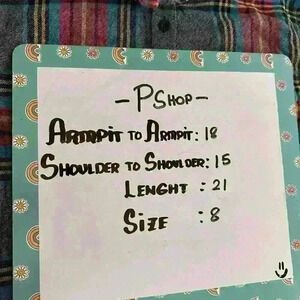 - P SHOP -
ARMPIT TO ARMPIT: 18
SHOULDER TO SHOULDER: 15
LENGHT : 21
SIZE : 8